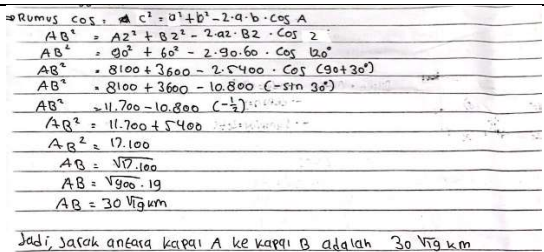 ⇒ Rumus cos : c² = a² + b² - 2·a·b·cos A
AB² = AZ² + BZ² - 2·az·BZ·cos Z
AB² = 90² + 60² - 2·90·60·cos 120°
AB² = 8100 + 3600 - 2·5400·cos (90+30°)
AB² = 8100 + 3600 - 10.800 (-sin 30°)
AB² = 11.700 - 10.800 (-½)
AB² = 11.700 + 5400
AB² = 17.100
AB = √17.100
AB = √900·19
AB = 30 √19 km
Jadi, Jarak antara kapal A ke kapal B adalah 30 √19 km